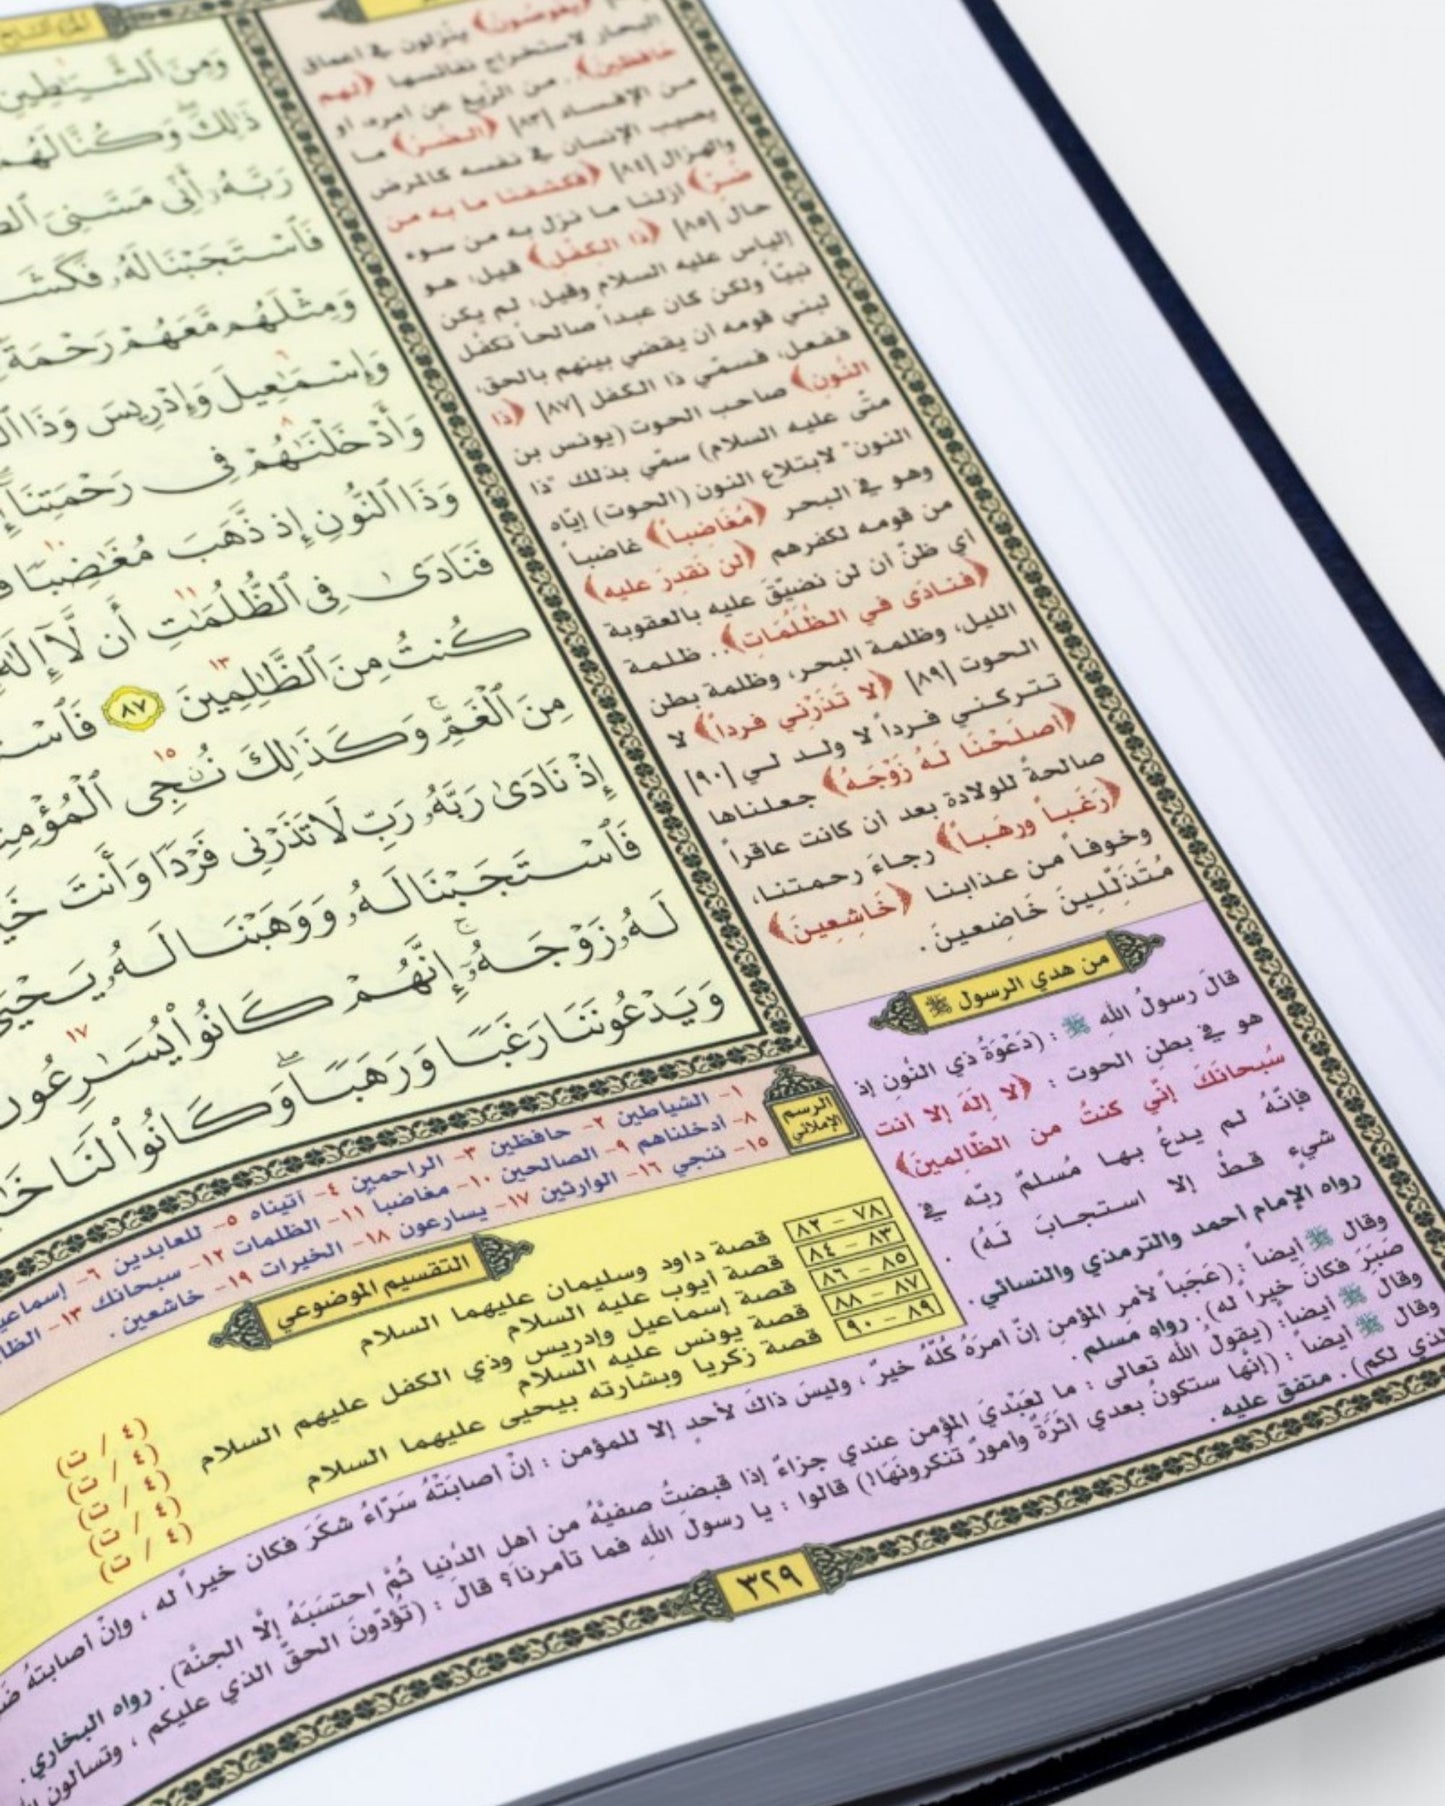 وَمِنَ ٱلشَّيَٰطِينِ
ذَٰلِكَ ۖ وَكُنَّا لَهُمْ
رَبَّهُۥٓ أَنِّى مَسَّنِىَ
فَٱسْتَجَبْنَا لَهُۥ فَكَشَ
وَمِثْلَهُم مَّعَهُمْ رَحْمَةً
وَإِسْمَٰعِيلَ وَإِدْرِيسَ وَذَا
وَأَدْخَلْنَٰهُمْ فِى رَحْمَتِنَآ
وَذَا ٱلنُّونِ إِذ ذَّهَبَ مُغَٰضِبًا
فَنَادَىٰ فِى ٱلظُّلُمَٰتِ أَن لَّآ إِلَٰهَ
كُنتُ مِنَ ٱلظَّٰلِمِينَ ٨٧ فَٱسْتَ
مِنَ ٱلْغَمِّ ۚ وَكَذَٰلِكَ نُـۨجِى ٱلْمُؤْمِنِ
إِذْ نَادَىٰ رَبَّهُۥ رَبِّ لَا تَذَرْنِى فَرْدًا وَأَنتَ خَيْ
فَٱسْتَجَبْنَا لَهُۥ وَوَهَبْنَا لَهُۥ يَحْيَىٰ
لَهُۥ زَوْجَهُۥٓ ۚ إِنَّهُمْ كَانُوا۟ يُسَٰرِعُونَ
وَيَدْعُونَنَا رَغَبًا وَرَهَبًا ۖ وَكَانُوا۟ لَنَا خَ
﴿يغوصون﴾ ينزلون في أعماق
البحار لاستخراج نفائسها ﴿لهم
حافظين﴾. من الزّيغ عن أمره، أو
من الإفساد [٨٣] ﴿الضّرّ﴾ ما
يصيب الإنسان في نفسه كالمرض
والهزال [٨٤] ﴿فكشفنا ما به من
ضُرّ﴾ أزلنا ما نزل به من سوء
حال [٨٥] ﴿ذا الكفل﴾ قيل: هو
إلياس عليه السلام وقيل: لم يكن
نبيّاً ولكن كان عبداً صالحاً تكفّل
لبني قومه أن يقضي بينهم بالحق،
ففعل، فسمّي ذا الكفل [٨٧] ﴿ذا
النّون﴾ صاحب الحوت (يونس بن
متّى عليه السلام) سمّي بذلك "ذا
النون" لابتلاع النون (الحوت) إيّاه
وهو في البحر ﴿مُغَاضِباً﴾ غاضباً
من قومه لكفرهم ﴿لن نَقدِرَ عليه﴾
أي ظنّ أن لن نضيّقَ عليه بالعقوبة
﴿فنادَى في الظُلُمَاتِ﴾.. ظلمة
الليل، وظلمة البحر، وظلمة بطن
الحوت [٨٩] ﴿لا تَذَرْنِي فرداً﴾ لا
تتركني فرداً لا ولد لي [٩٠]
﴿أصلَحْنَا لَهُ زَوْجَهُ﴾ جعلناها
صالحةً للولادة بعد أن كانت عاقراً
﴿رَغَباً ورهَباً﴾ رجاءَ رحمتنا،
وخوفاً من عذابنا ﴿خَاشِعينَ﴾
مُتَذَلِّلِينَ خَاضِعِينَ.
من هدي الرسول ﷺ
قالَ رسولُ اللهِ ﷺ : (دَعْوَةُ ذي النُونِ إذ
هو في بطنِ الحوت : ﴿لا إِلَهَ إلا أنت
سُبحانَكَ إنّي كنتُ من الظَّالِمينَ﴾
فإنّهُ لم يدعُ بها مُسلمٌ ربّه في
شيءٍ قطُ إلا استجابَ لَهُ) .
رواه الإمام أحمد والترمذي والنسائي.
وقال ﷺ أيضاً : (عَجَباً لأمرِ المؤمنِ إنّ أمرَهُ كُلَّهُ خيرٌ ، وليسَ ذاكَ لأحدٍ إلا للمؤمن : إنْ أصابَتْهُ سَرّاءُ شكَرَ فكان خيراً له ، وإنْ أصابتهُ
صَبَرَ فكانَ خيراً له). رواه مسلم .
وقال ﷺ أيضاً: (يقولُ الله تعالى : ما لعَبْديَ المؤمن عندي جزاءٌ إذا قبضتُ صفيّهُ من أهل الدُنيا ثُمّ احتسَبَهُ إلّا الجنّة) . رواه البخاري.
وقال ﷺ أيضاً : (إنّها ستكونُ بعدي أثَرَةٌ وأمورٌ تُنكرونَهَا!) قالوا : يا رسولَ اللهِ فما تأمرناَ؟ قالَ : (تُؤَدّونَ الحقَّ الذي عليكم ، وتسألون
لذي لكم) . متفق عليه .
الرسم الإملائي
١- الشياطين ٢- حافظين ٣- الراحمين ٤- آتيناه ٥- للعابدين ٦- إسماعي
٨- أدخلناهم ٩- الصالحين ١٠- مغاضباً ١١- الظلمات ١٢- سبحانك ١٣- الظا
١٥- ننجي ١٦- الوارثين ١٧- يسارعون ١٨- الخيرات ١٩- خاشعين .
التقسيم الموضوعي
٧٨ – ٨٢ قصة داود وسليمان عليهما السلام (٤ / ت)
٨٣ – ٨٤ قصة أيوب عليه السلام (٤ / ت)
٨٥ – ٨٦ قصة إسماعيل وإدريس وذي الكفل عليهم السلام (٤ / ت)
٨٧ – ٨٨ قصة يونس عليه السلام (٤ / ت)
٨٩ – ٩٠ قصة زكريا وبشارته بيحيى عليهما السلام (٤ / ت)
٣٢٩